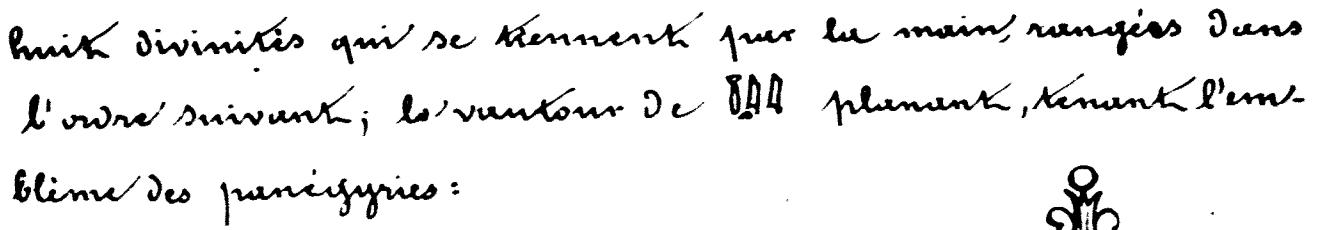 huit divinités qui se tiennent par la main, rangées dans
l'ordre suivant; le vautour de planant, tenant l'em-
blème des panégyries: